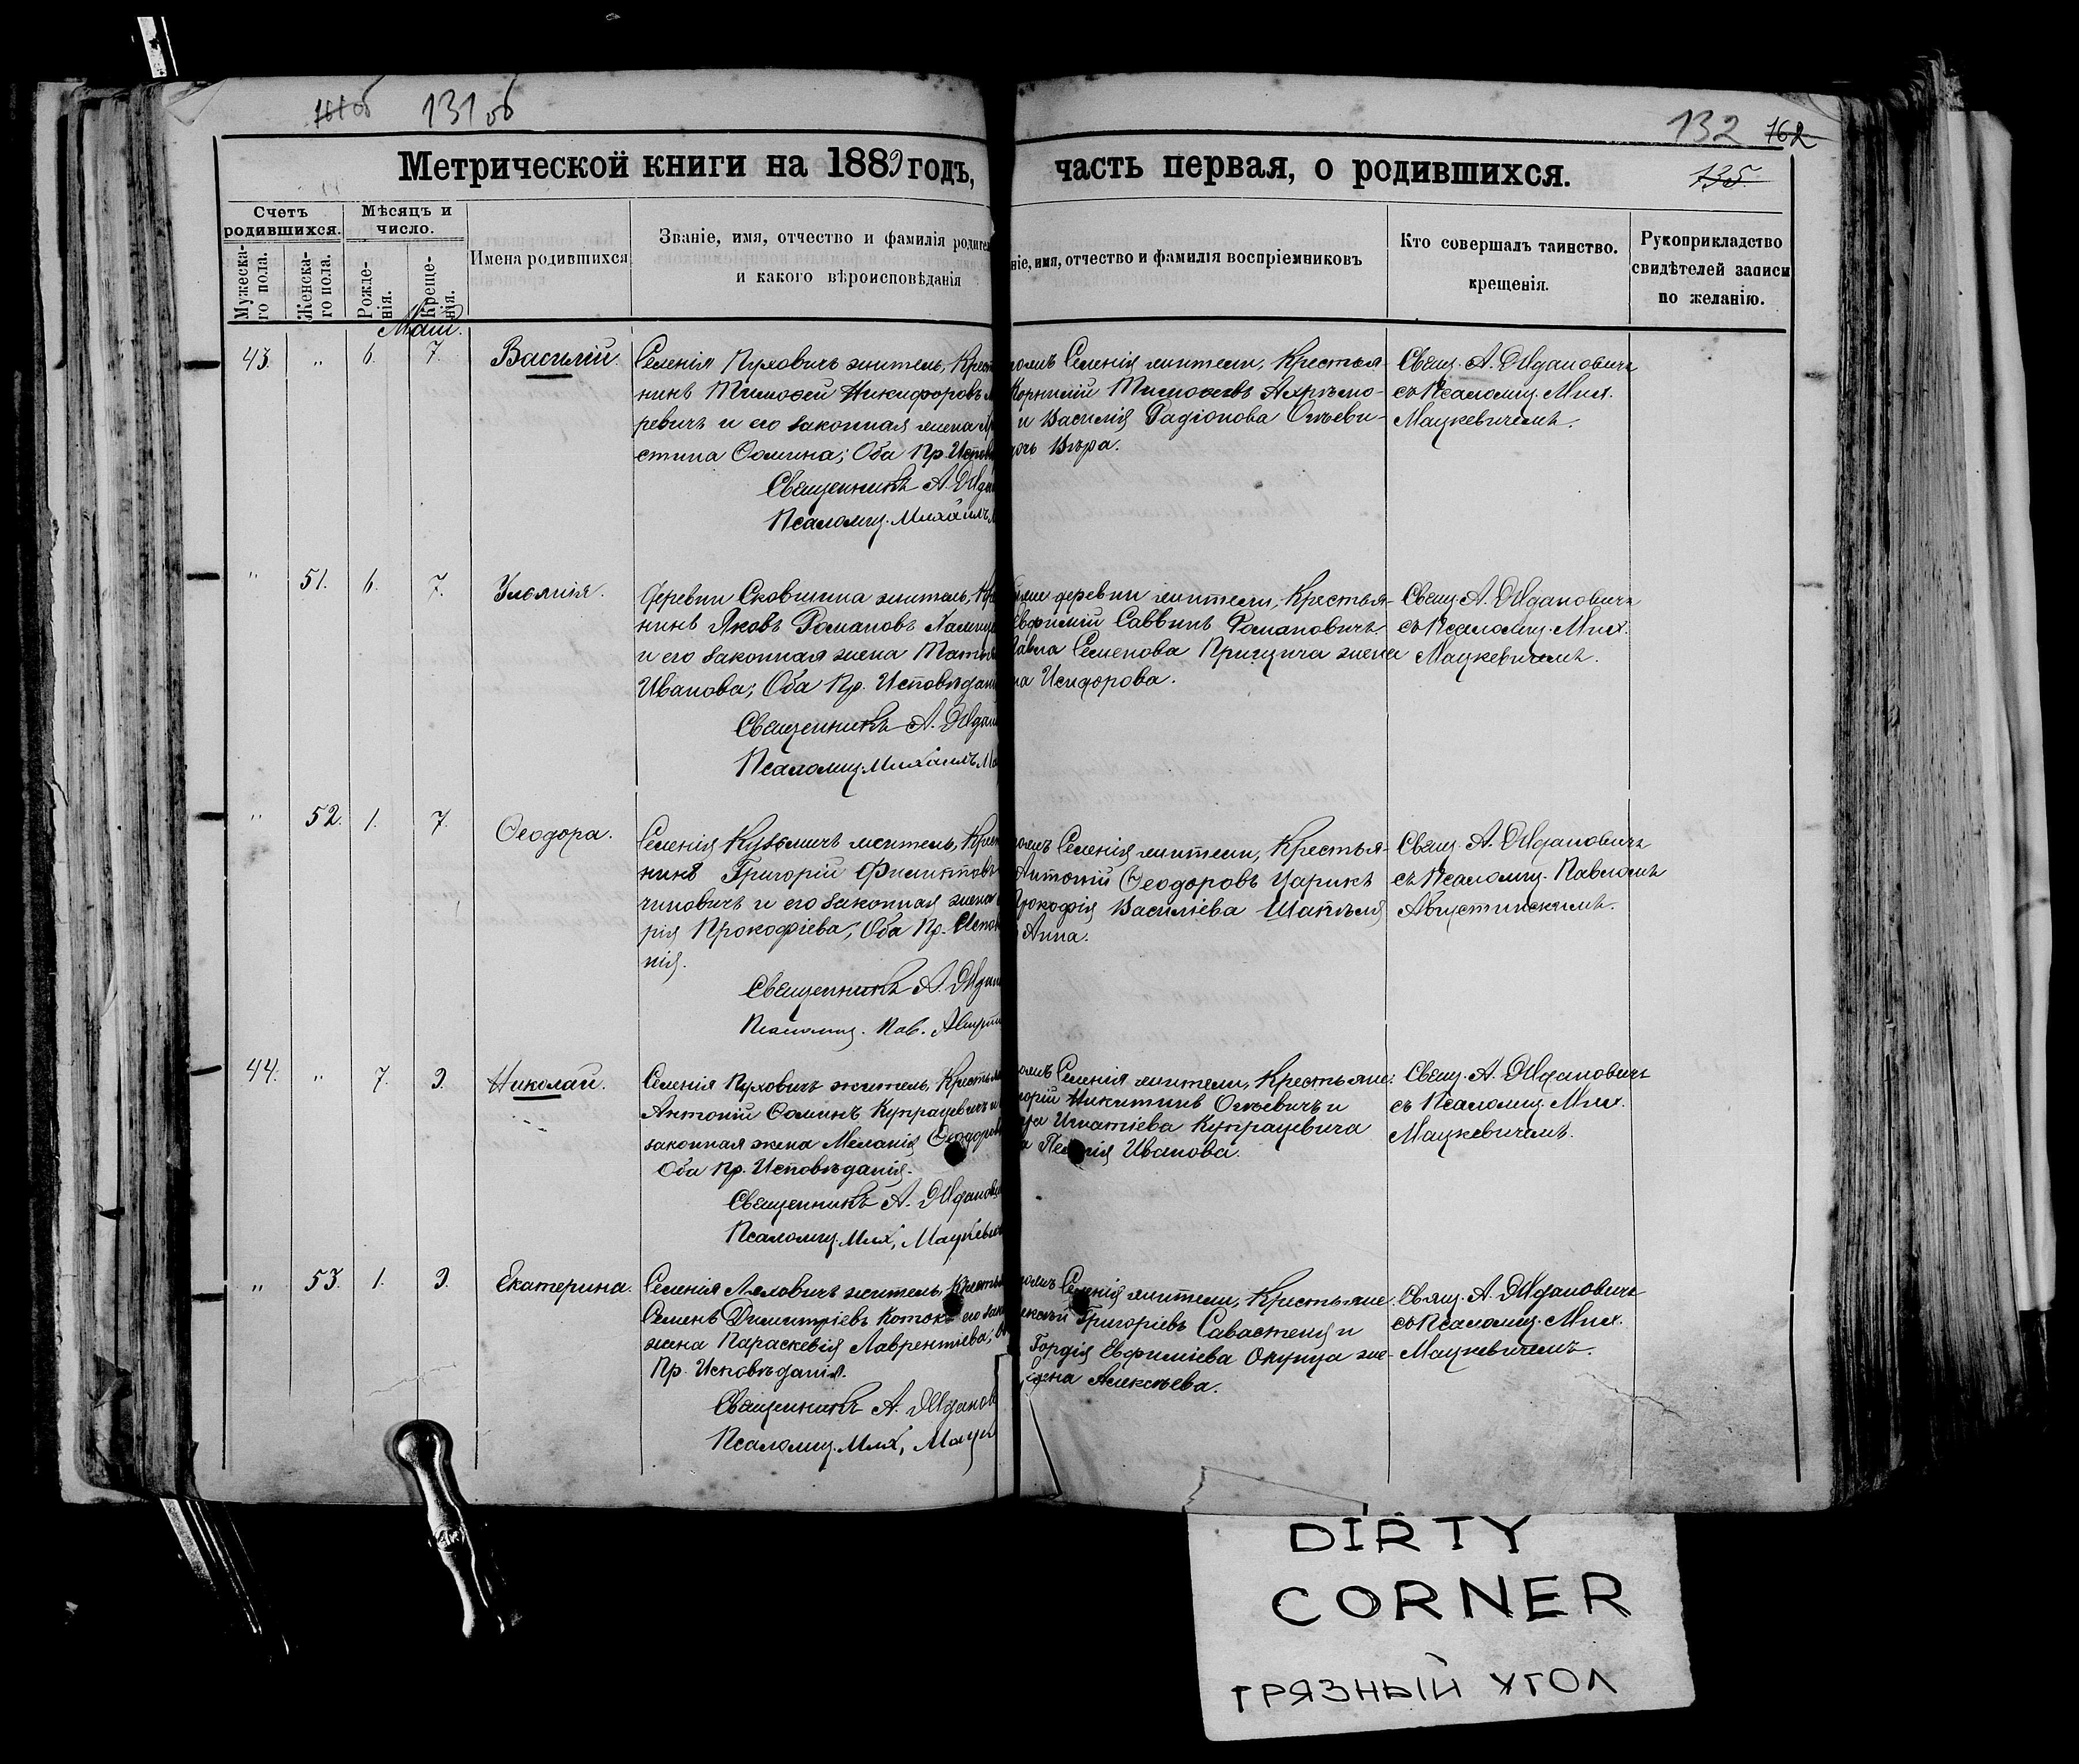 131 об
132 162
Метрической книги на 1889 годъ, часть первая, о родившихся.
135
Счетъ родившихся.
Мѣсяцъ и число.
Мужеска-го пола.
Женска-го пола.
Рожде-нія.
Креще-нія.
Имена родившихся
Званіе, имя, отчество и фамилія родител
и какого вѣроисповѣданія
ніе, имя, отчество и фамилія воспріемниковъ
Кто совершалъ таинство.
крещенія.
Рукоприкладство
свидѣтелей записи
по желанію.
Маій.
43. " 6. 7. Василій.
Селенія Пуховичъ житель, Крест
нинъ Тимоѳей Никифоровъ
ревичъ и его законная жена
стина Ѳомина; Оба Пр. Испов
Священникъ А. Ждан
Псаломщ. Михаилъ
Селенія жители, Крестья-
Корнилій Тимоѳеевъ
и Василія Радіонова
Вѣра.
Свящ. А. Ждановичъ
съ Псаломщ. Мих.
Мацкевичемъ.
" 51. 6. 7. Іуліанія.
Деревни Сковшина житель, Кре
нинъ Яковъ Романовъ
и его законная жена Татья
Иванова; Оба Пр. Исповѣдані
Священникъ А. Ждан
Псаломщ. Михаилъ Ма
деревни жители, Крестья-
Евфимій Саввинъ Романовичъ
Павла Семенова Прищича жена
на Исидорова.
Свящ. А. Ждановичъ
съ Псаломщ. Мих.
Мацкевичемъ.
" 52. 1. 7. Ѳеодора.
Селенія Кузьмичъ житель, Крест
нинъ Григорій Филиповъ
чиновичъ и его законная жена
рія Прокофіева; Оба Пр. Испов
нія.
Священникъ А. Ждан
Псаломщ. Пав. Августи
Селенія жители, Крестья-
Антоній Ѳеодоровъ Царикъ
Прокофія Василіева Шапѣля
Анна.
Свящ. А. Ждановичъ
съ Псаломщ. Павломъ
Августинскимъ.
44. " 7. 9. Николай.
Селенія Пуховичъ житель, Крестьян
Антоній Ѳоминъ Купрацевичъ и
законная жена Меланія Ѳеодоров
Оба Пр. Исповѣданія.
Священникъ А. Жданови
Псаломщ. Мих. Мацкевич
Селенія жители, Крестьяне:
горій Никитинъ и
Игнатіева Купрацевича
Иванова.
Свящ. А. Ждановичъ
съ Псаломщ. Мих.
Мацкевичемъ.
" 53. 1. 9. Екатерина.
Селенія Ляховичъ житель, Крестья
Семенъ Димитріевъ Котокъ его зак
жена Параскевія Лаврентіева;
Пр. Исповѣданія.
Священникъ А. Жданов
Псаломщ. Мих. Мацк
Селенія жители, Крестьяне:
Алексій Григоріевъ Савастеня и
Гордія Евфиміева Окупца же-
Алексѣева.
Свящ. А. Ждановичъ
съ Псаломщ. Мих.
Мацкевичемъ.
DIRTY
CORNER
ГРЯЗНЫЙ УГОЛ